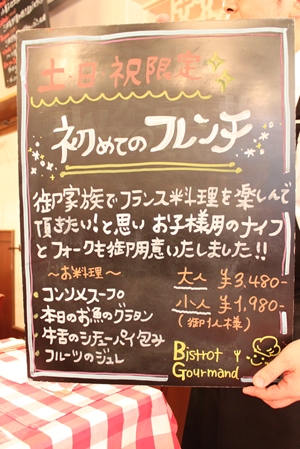 土・日・祝限定
初めてのフレンチ
御家族でフランス料理を楽しんで
頂きたい!と思い お子様用のナイフ
とフォークも御用意いたしました!!
〜お料理〜
・コンソメスープ
・本日のお魚のグラタン
・牛舌のシチューパイ包み
・フルーツのジュレ
大人 ¥3,480-
小人 ¥1,980-
(御1人様)
Bistrot
Gourmand